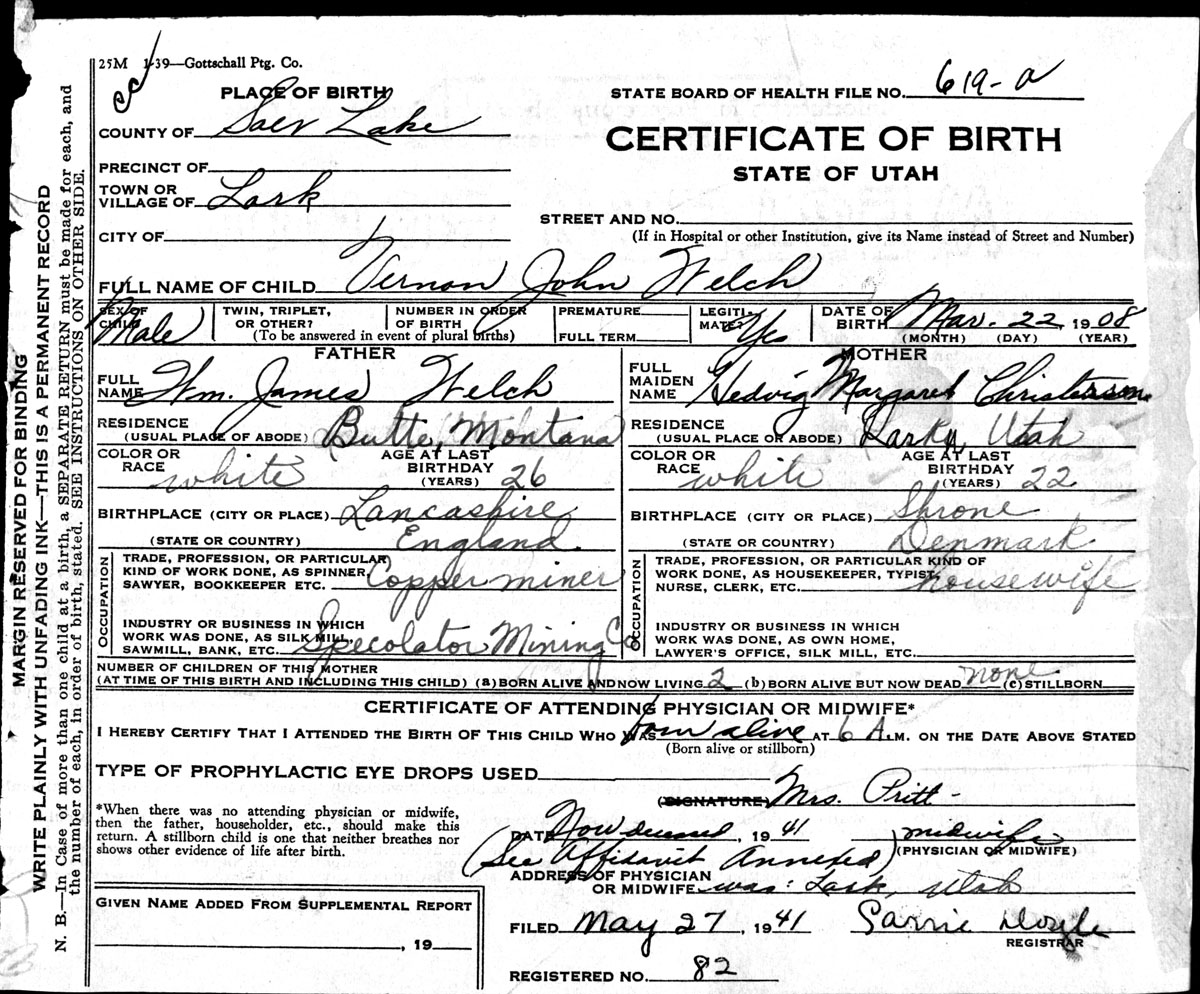 25M 1-39—Gottschall Ptg. Co.
PLACE OF BIRTH
STATE BOARD OF HEALTH FILE NO. 619-a
COUNTY OF Salt Lake
CERTIFICATE OF BIRTH
STATE OF UTAH
PRECINCT OF
TOWN OR
VILLAGE OF Lark
STREET AND NO.
(If in Hospital or other Institution, give its Name instead of Street and Number)
CITY OF
FULL NAME OF CHILD Vernon John Welch
SEX OF
CHILD Male
TWIN, TRIPLET,
OR OTHER?
NUMBER IN ORDER
OF BIRTH
(To be answered in event of plural births)
PREMATURE
FULL TERM
LEGITI-
MATE? Yes
DATE OF
BIRTH Mar. 22, 1908
(MONTH) (DAY) (YEAR)
FATHER
FULL
NAME Wm. James Welch
RESIDENCE
(USUAL PLACE OF ABODE) Butte, Montana
COLOR OR
RACE white
AGE AT LAST
BIRTHDAY
(YEARS) 26
BIRTHPLACE (CITY OR PLACE) Lancashire
(STATE OR COUNTRY) England
OCCUPATION
TRADE, PROFESSION, OR PARTICULAR
KIND OF WORK DONE, AS SPINNER,
SAWYER, BOOKKEEPER ETC. Copper miner
INDUSTRY OR BUSINESS IN WHICH
WORK WAS DONE, AS SILK MILL,
SAWMILL, BANK, ETC. Specolator Mining Co
MOTHER
FULL
MAIDEN
NAME Hedvig Margaret
RESIDENCE
(USUAL PLACE OR ABODE) Lark, Utah
COLOR OR
RACE white
AGE AT LAST
BIRTHDAY
(YEARS) 22
BIRTHPLACE (CITY OR PLACE) Shrone
(STATE OR COUNTRY) Denmark
OCCUPATION
TRADE, PROFESSION, OR PARTICULAR KIND OF
WORK DONE, AS HOUSEKEEPER, TYPIST,
NURSE, CLERK, ETC. housewife
INDUSTRY OR BUSINESS IN WHICH
WORK WAS DONE, AS OWN HOME,
LAWYER'S OFFICE, SILK MILL, ETC.
NUMBER OF CHILDREN OF THIS MOTHER
(AT TIME OF THIS BIRTH AND INCLUDING THIS CHILD) (a) BORN ALIVE AND NOW LIVING 2 (b) BORN ALIVE BUT NOW DEAD none (c) STILLBORN
CERTIFICATE OF ATTENDING PHYSICIAN OR MIDWIFE*
I HEREBY CERTIFY THAT I ATTENDED THE BIRTH OF THIS CHILD WHO WAS born alive AT 6 A.M. ON THE DATE ABOVE STATED
(Born alive or stillborn)
TYPE OF PROPHYLACTIC EYE DROPS USED
(SIGNATURE) Mrs. Pritt-
*When there was no attending physician or midwife,
then the father, householder, etc., should make this
return. A stillborn child is one that neither breathes nor
shows other evidence of life after birth.
DATE Now deceased, 1941 midwife
(PHYSICIAN OR MIDWIFE)
(See Affidavit Annexed)
ADDRESS OF PHYSICIAN
OR MIDWIFE was: Lark, Utah
GIVEN NAME ADDED FROM SUPPLEMENTAL REPORT
, 19
FILED May 27, 1941 Doyle
REGISTRAR
REGISTERED NO. 82
MARGIN RESERVED FOR BINDING
WRITE PLAINLY WITH UNFADING INK—THIS IS A PERMANENT RECORD
N. B.—In Case of more than one child at a birth, a SEPARATE RETURN must be made for each, and
the number of each, in order of birth, stated. SEE INSTRUCTIONS ON OTHER SIDE.